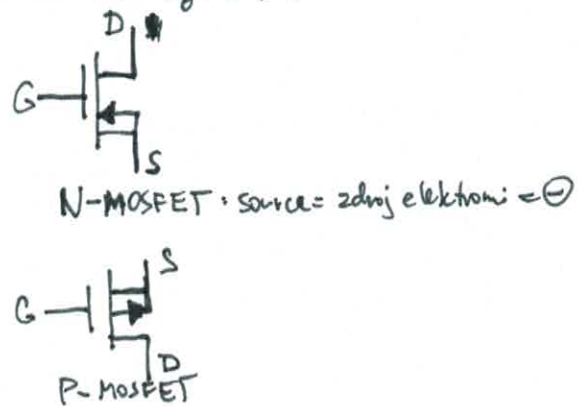 D
G
S
N-MOSFET: source = zdroj elektronů = ⊖
S
G
D
P-MOSFET